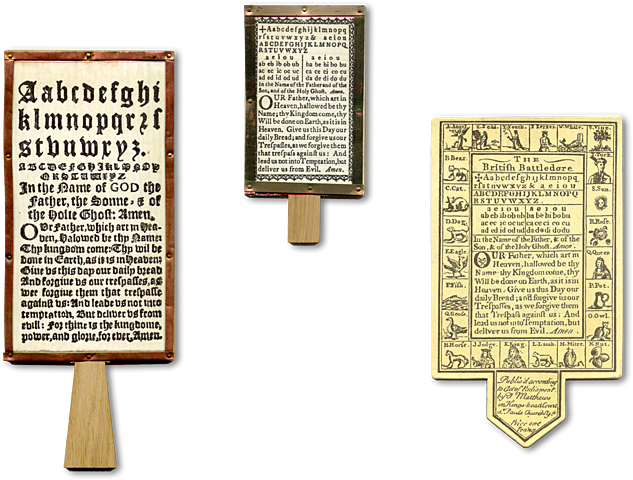 Aabcdefghi
klmnopqrzſ
stvuwryz.
In the Name of GOD the
Father, the Sonne, & of
the Holie Ghost: Amen.
OUr Father, which art in Hea-
ven, Halowed be thy Name:
Thy kingdom come: Thy wil be
done in Earth, as it is in Heaven:
Giue vs this day our daily bread
And forgiue vs our trespasses, as
wee forgiue them that trespasse
against vs: And leade vs not into
temptation, But deliver vs from
evill: For thine is the kingdome,
power, and glorie, for ever, Amen.
+Aabcdefghijklmnopq
rſstuvwxyz& aeiou
ABCDEFGHIJKLMNOPQ
RSTUVWXYZ
a e i o u a e i o u
ab eb ib ob ub ba be bi bo bu
ac ec ic oc uc ca ce ci co cu
ad ed id od ud da de di do du
In the Name of the Father and of the
Son, and of the Holy Ghost. Amen.
OUR Father, which art in
Heaven, hallowed be thy
Name; thy Kingdom come, thy
Will be done on Earth, as it is in
Heaven. Give us this Day our
daily Bread; and forgive us our
Treſpaſſes, as we forgive them
that treſpaſs againſt us: And
lead us not into Temptation, but
deliver us from Evil. Amen.
B.Bear.
C.Cat.
D.Dog.
E.Eagle.
F.Fish.
G.Gooſe.
S.Sun.
R.Roſe.
Q.Queen
P.Pot.
O.Owl.
THE
British Battledore
+Aabcdefghijklmnopq
rſstuvwxyz & aeiou
ABCDEFGHIJKLMNOPQ
RSTUVWXYZ
a e i o u a e i o u
ab eb ib ob ub ba be bi bo bu
ac ec ic oc uc ca ce ci co cu
ad ed id od ud da de di do du
In the Name of the Father, & of the
Son, & of the Holy Ghost. Amen.
OUR Father, which art in
Heaven, hallowed be thy
Name thy Kingdom come, thy
Will be done on Earth, as it is in
Heaven. Give us this Day our
daily Bread; and forgive us our
Treſpaſſes, as we forgive them
that Treſpaſs againſt us: And
lead us not into Temptation, but
deliver us from Evil. AMEN.
H.Horſe. J.Judge. K.King. L.Lamb. M.Mitre. N.Nut.
Publiſd according
to Act of Parliament
by J Matthews
in Kings head Court
St Pauls Church Yd
Price one
Penny